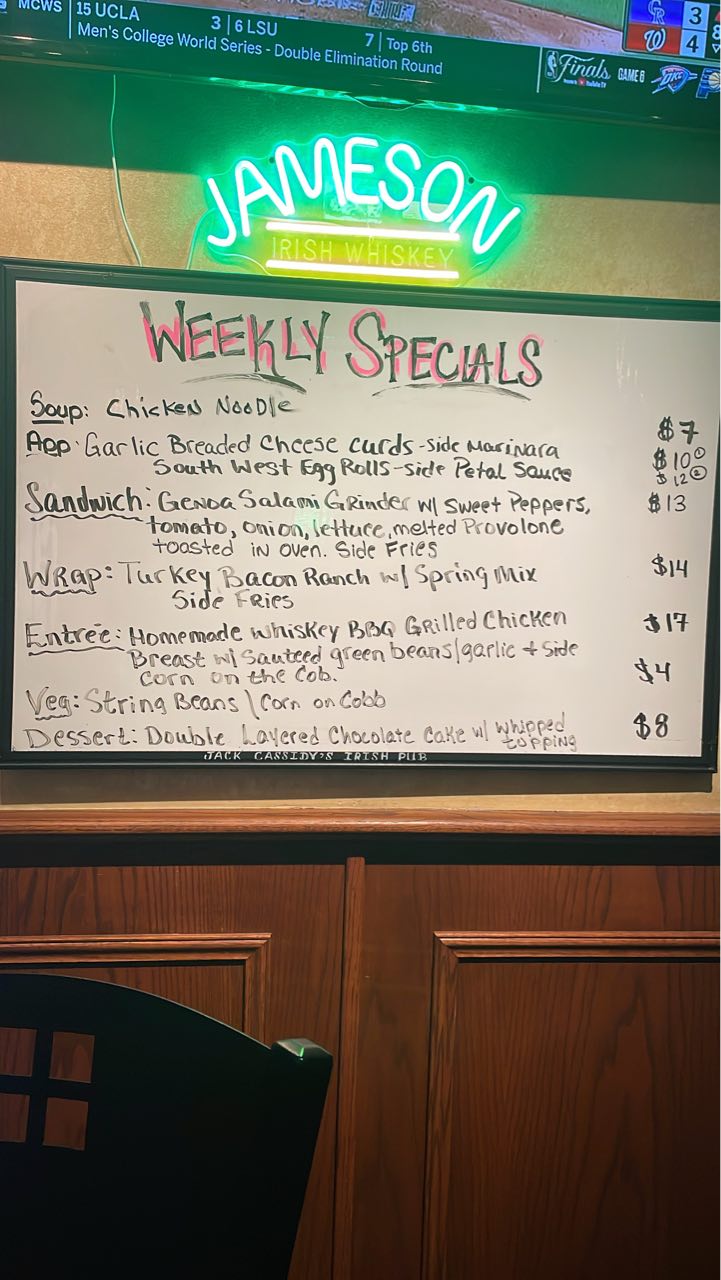 MCWS 15 UCLA 3 6 LSU 7 Top 6th
Men's College World Series - Double Elimination Round
CR 3
W 4
Finals GAME 6 OKC
JAMESON
IRISH WHISKEY
WEEKLY SPECIALS
Soup: Chicken Noodle $7
App: Garlic Breaded Cheese curds - side Marinara $10①
South West Egg Rolls - side Petal Sauce $12②
Sandwich: Genoa Salami Grinder w/ Sweet Peppers, $13
tomato, onion, lettuce, melted Provolone
toasted in oven. Side Fries
Wrap: Turkey Bacon Ranch w/ Spring Mix $14
Side Fries
Entrée: Homemade Whiskey BBQ Grilled Chicken $17
Breast w/ Sauteed green beans/garlic + Side
Corn on the Cob.
Veg: String Beans \ Corn on Cobb $4
Dessert: Double Layered Chocolate Cake w/ whipped $8
topping
JACK CASSIDY'S IRISH PUB